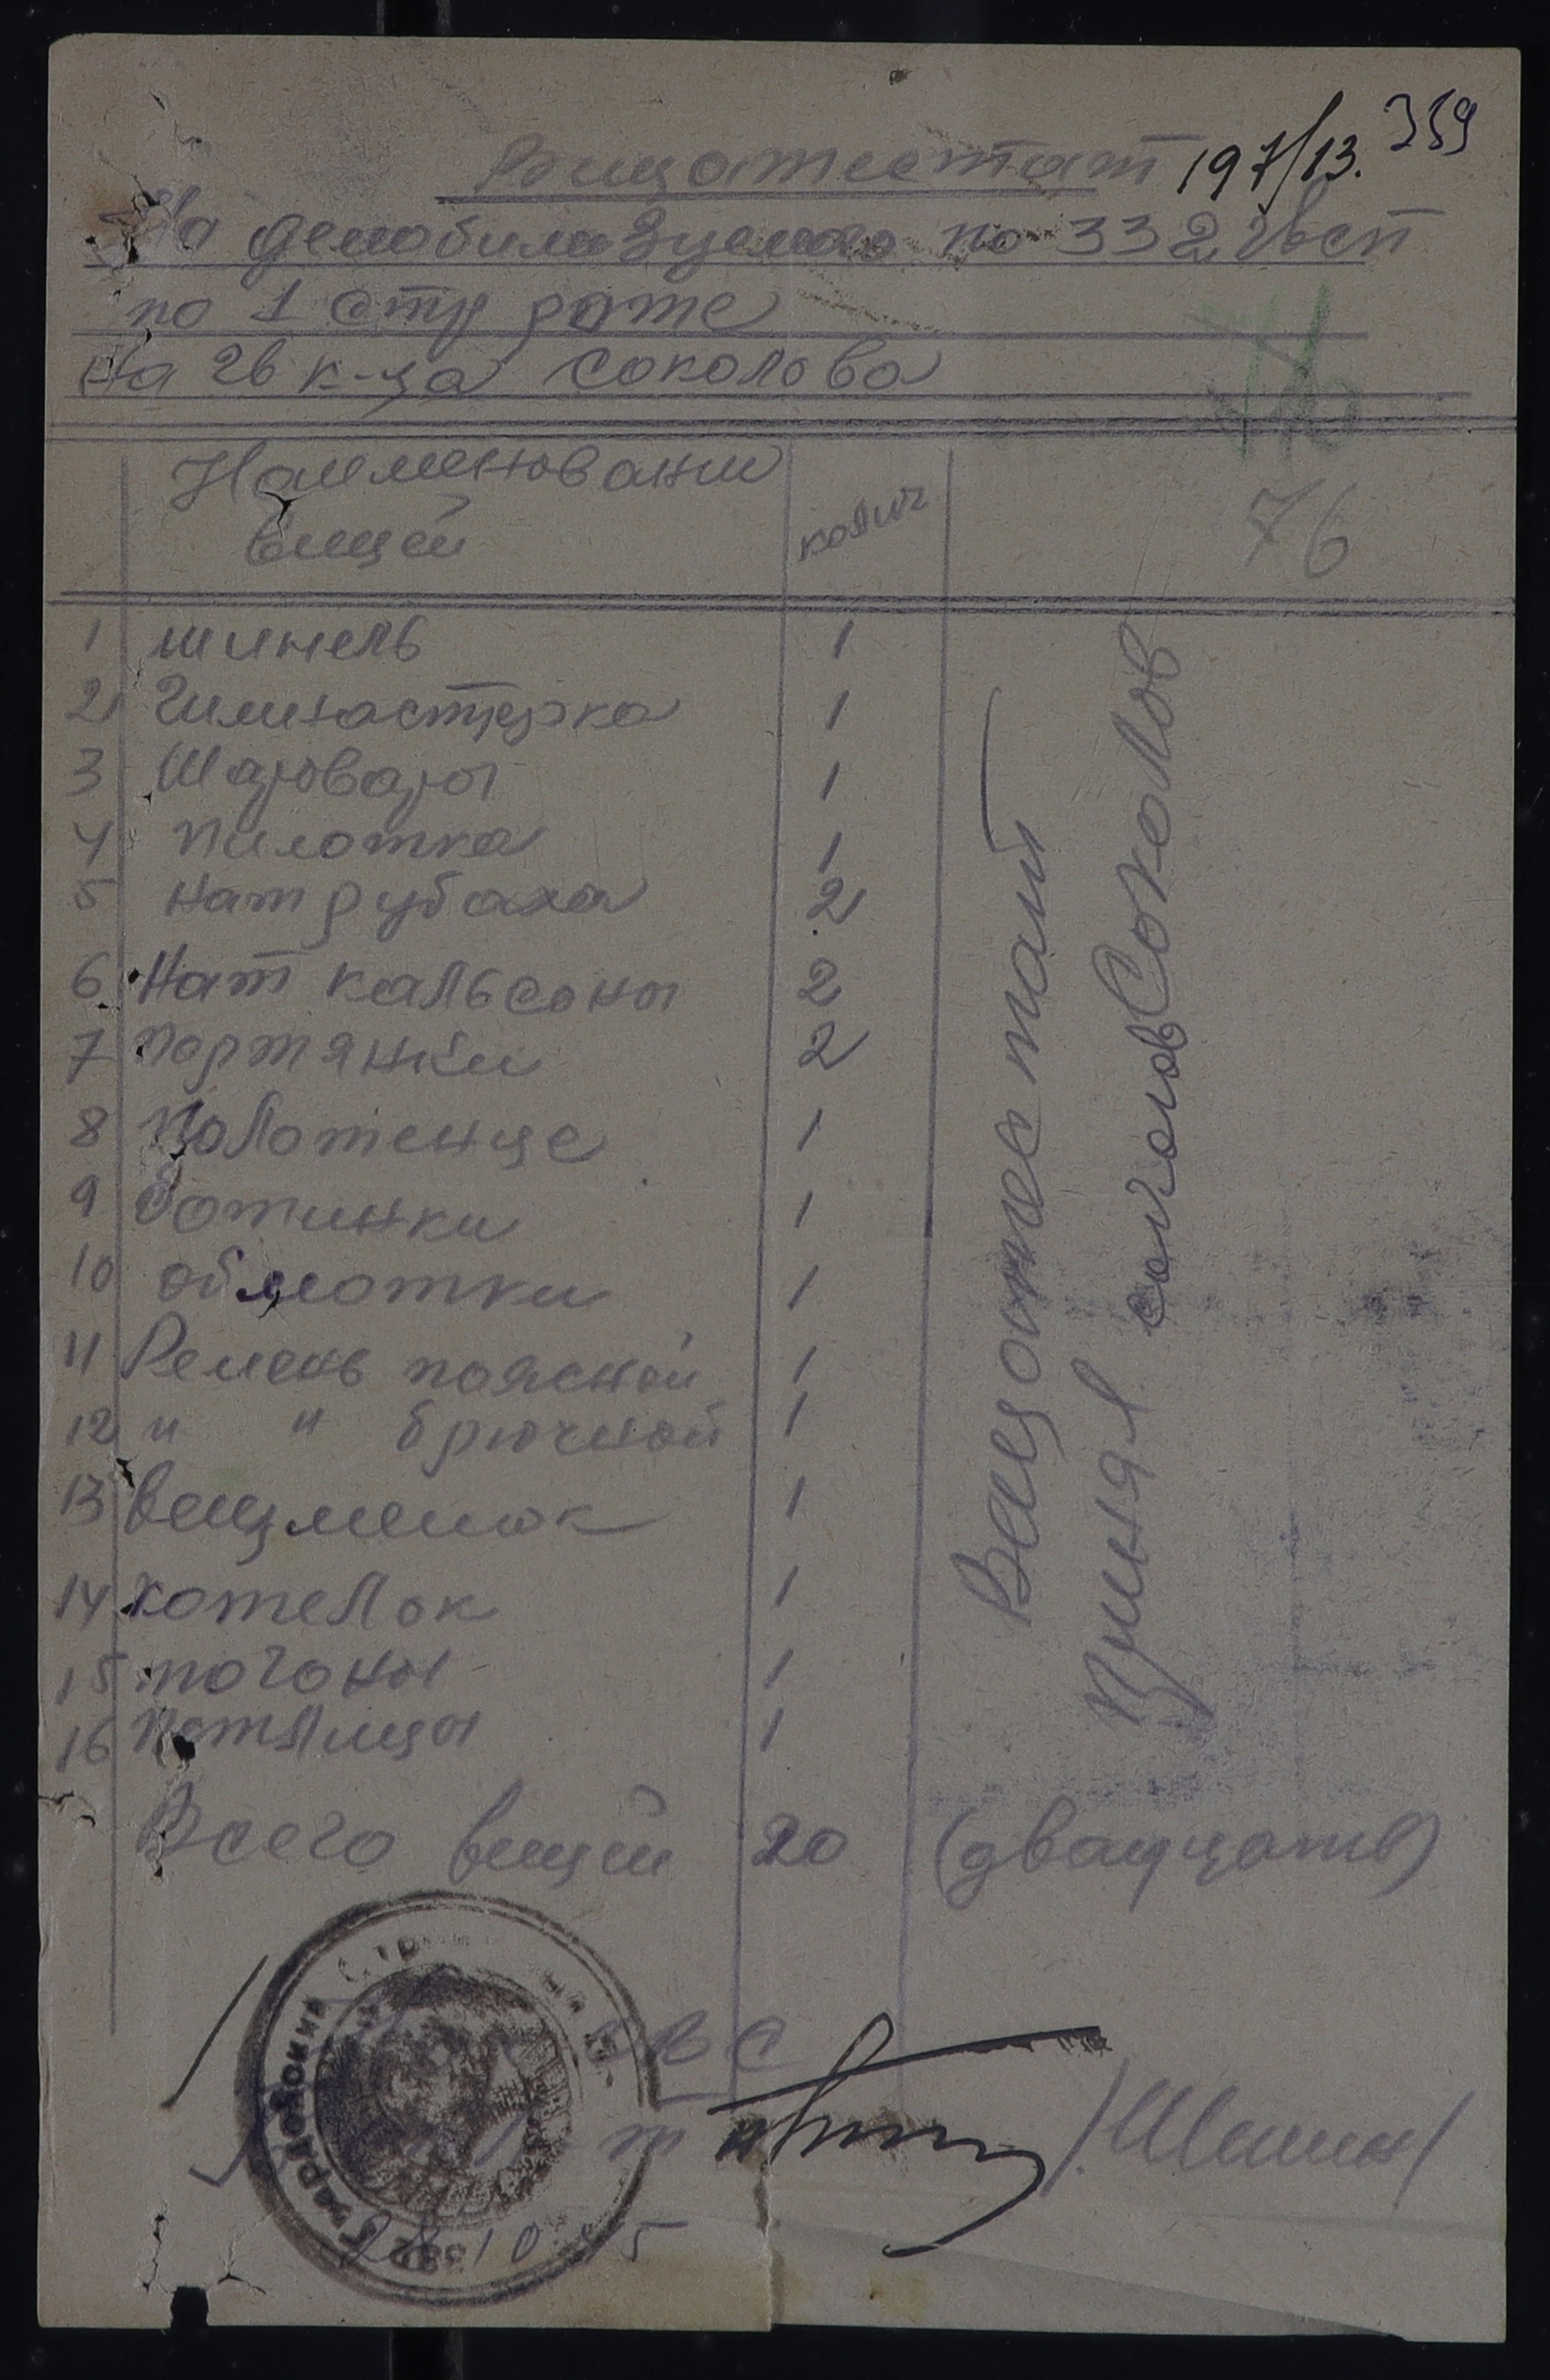 Вещатестат 197/13. 359
На демобилизуемого по 332 гвсп
по 1 стр роте
На гв к-ца Соколова
76
Наименовании вещей
колич
76
1 шинель 1
2 Гимнастерка 1
3 Шаровары 1
4 пилотка 1
5 нат рубаха 2
6 Нат кальсоны 2
7 портянки 2
8 Полотенце 1
9 ботинки 1
10 обмотки 1
11 Ремень поясной 1
12 " " брючной 1
13 вещмешок 1
14 котелок 1
15 погоны 1
16 петлицы 1
Всего вещей 20 (двадцать)
Вещатестат
принял Соколов
Гвардейский Стр
ОВС
28 10 45